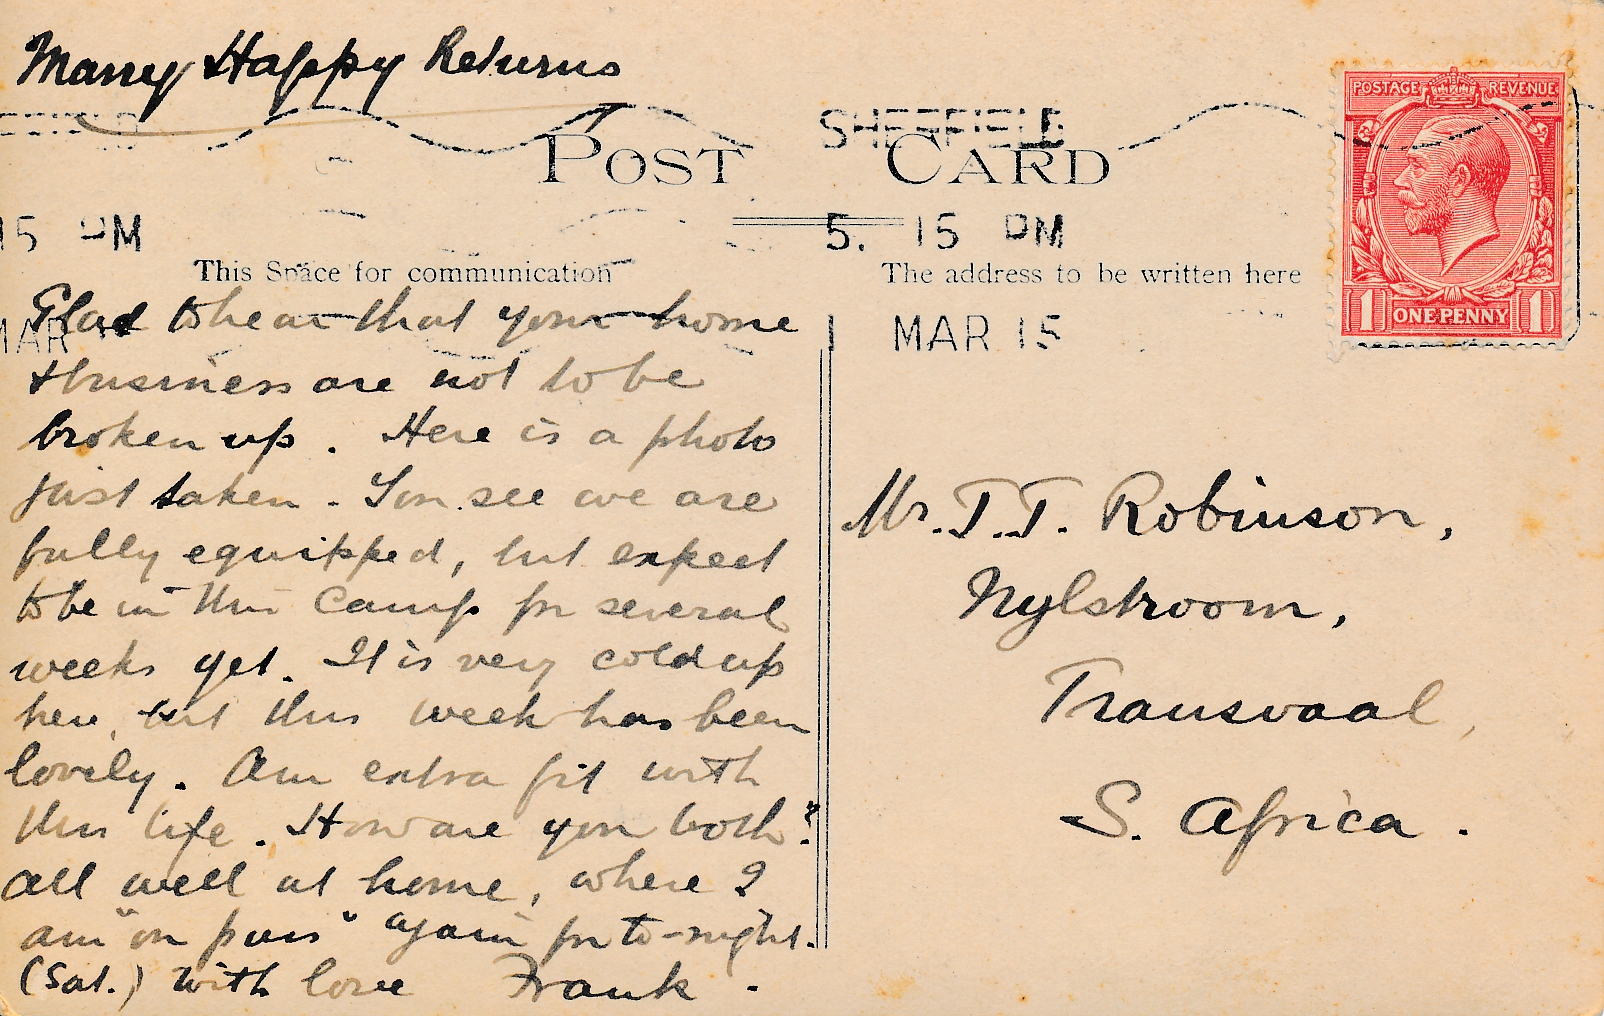 Many Happy Returns
SHEFFIELD
POST CARD
15 PM
5. 15 PM
This Space for communication
The address to be written here
MAR
1 MAR 15
POSTAGE REVENUE
1 ONE PENNY 1
Glad to hear that your home
& business are not to be
broken up. Here is a photo
just taken - You see we are
fully equipped, but expect
to be in this Camp for several
weeks yet. It is very cold up
here, but this week has been
lovely. Am extra fit with
this life. How are you both?
All well at home, where I
am "on pass" again for to-night.
(Sat.) With love Frank.
Mr. T. T. Robinson,
Nylstroom,
Transvaal,
S. Africa.